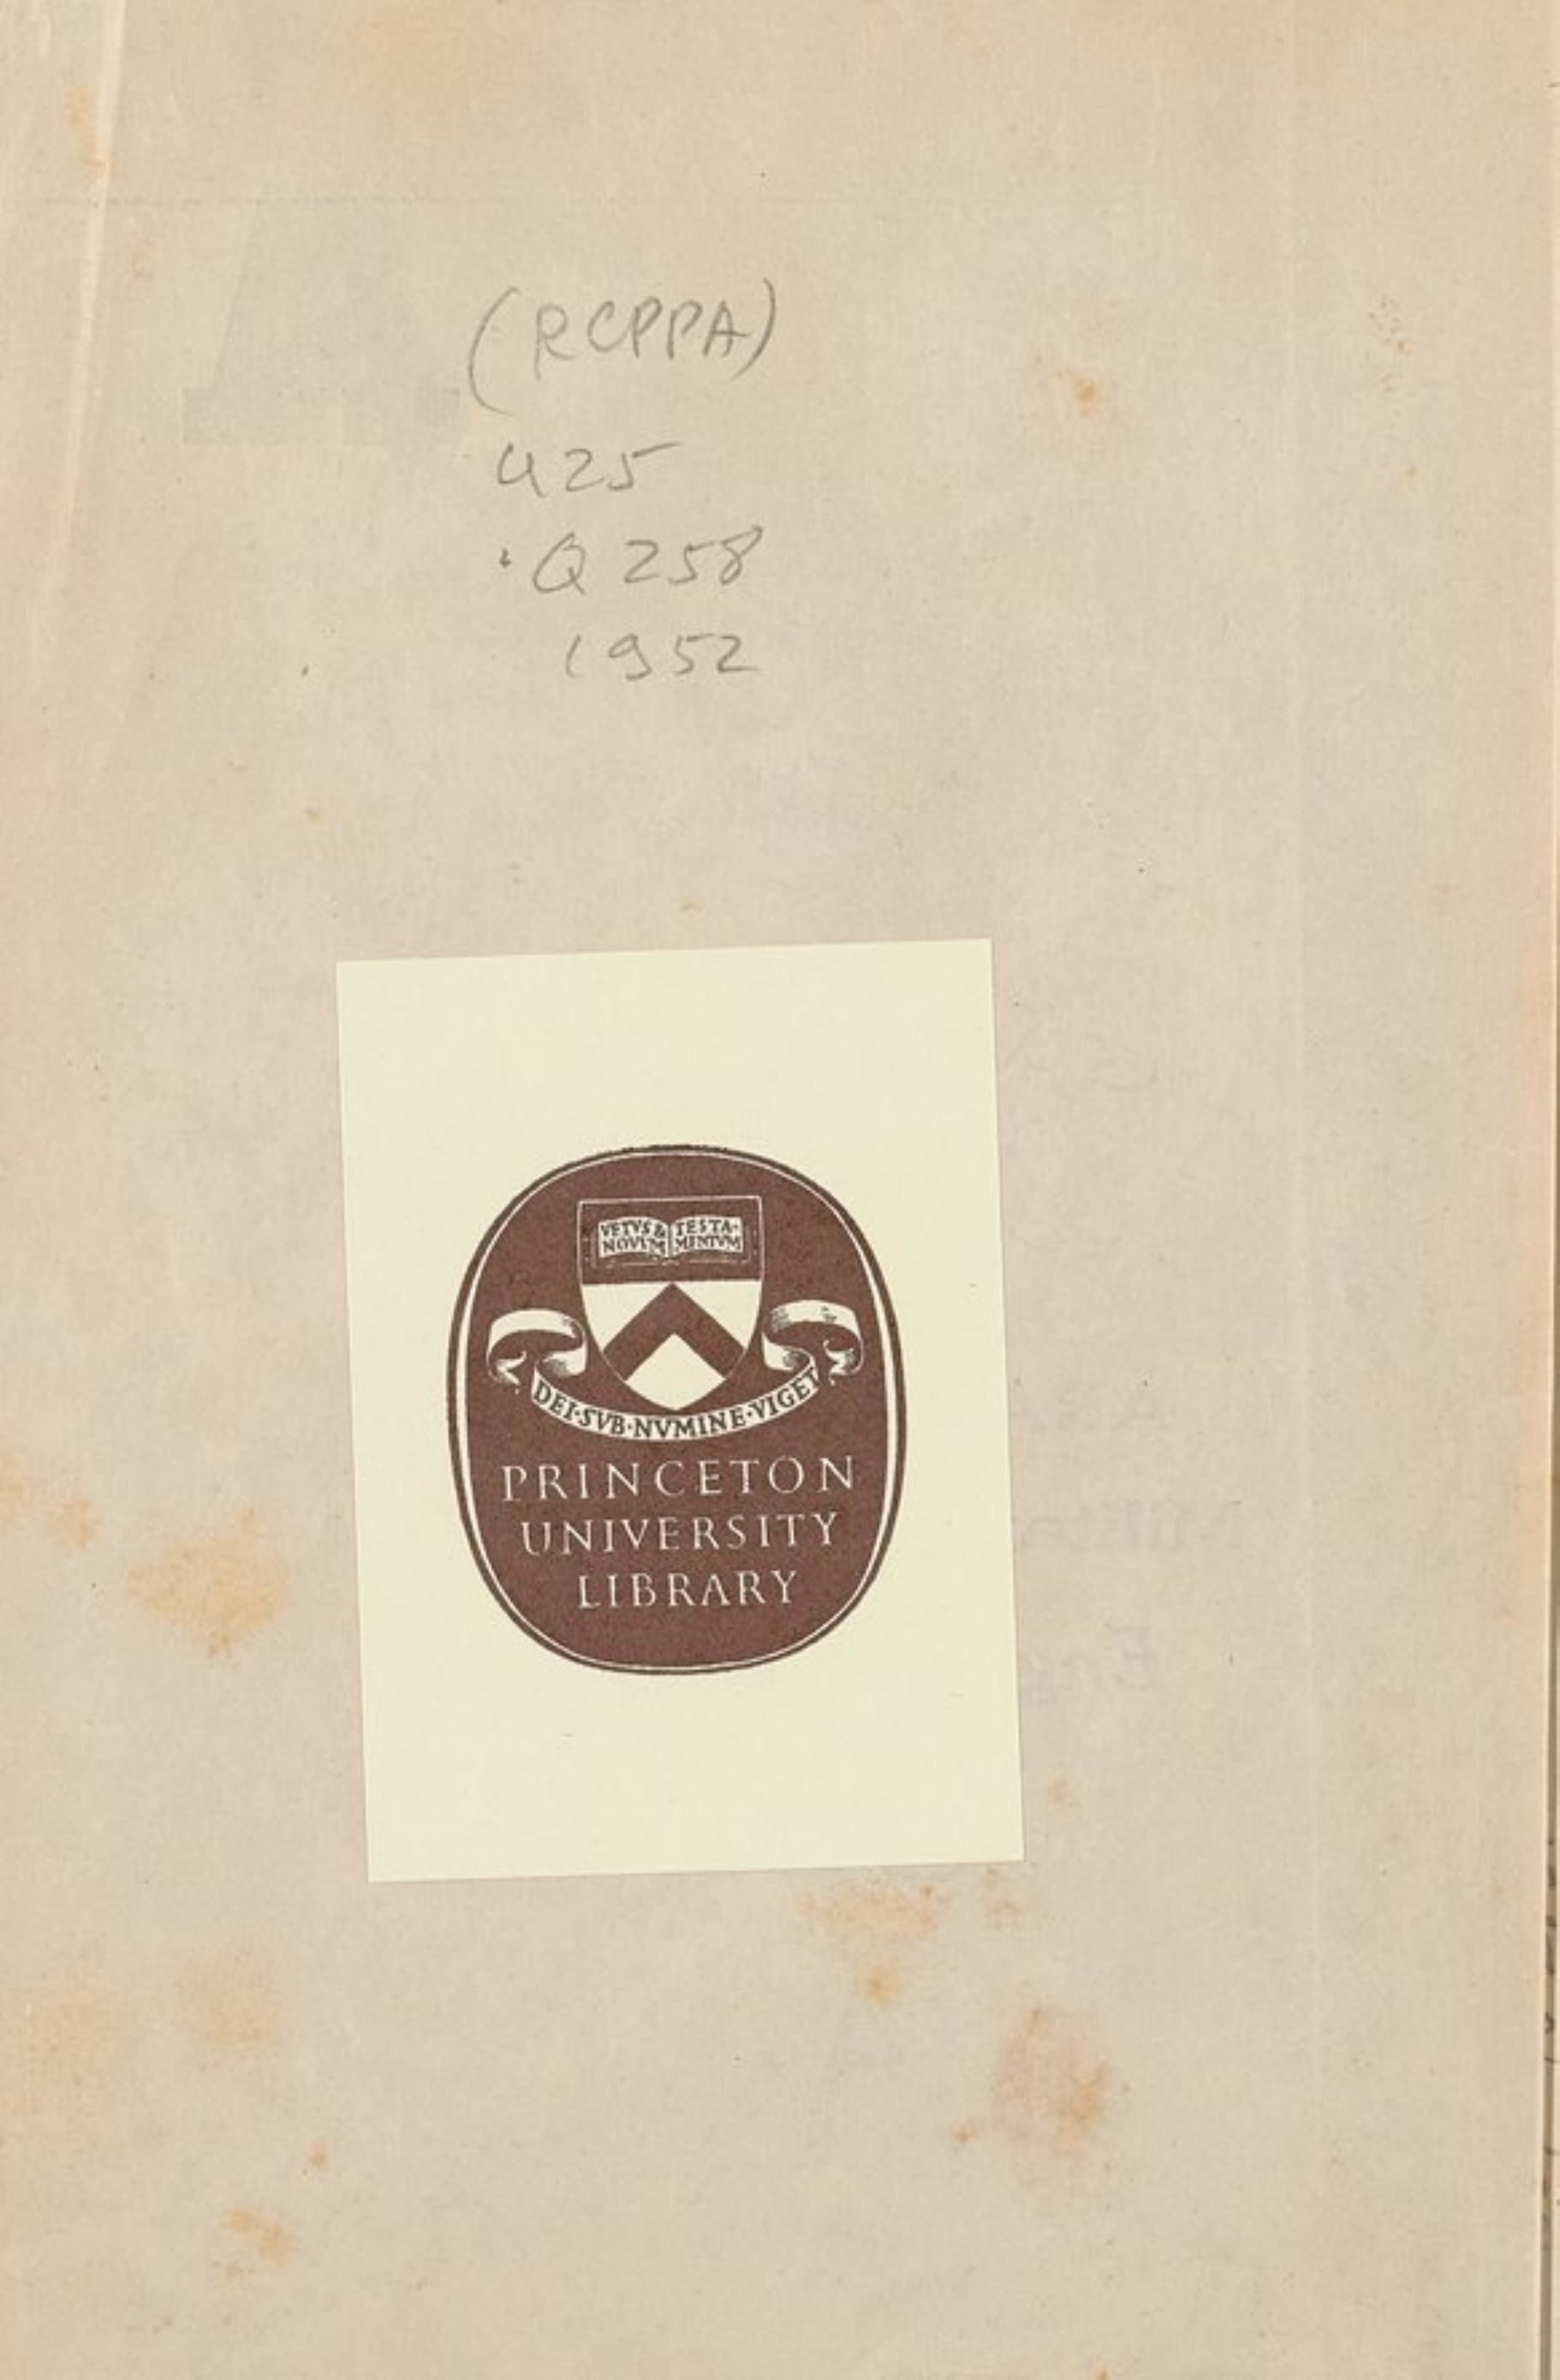 (RCPPA)
U25
.Q258
1952
VETVS & NOVVM
TESTA-MENTVM
DEI·SVB·NVMINE·VIGET
PRINCETON
UNIVERSITY
LIBRARY